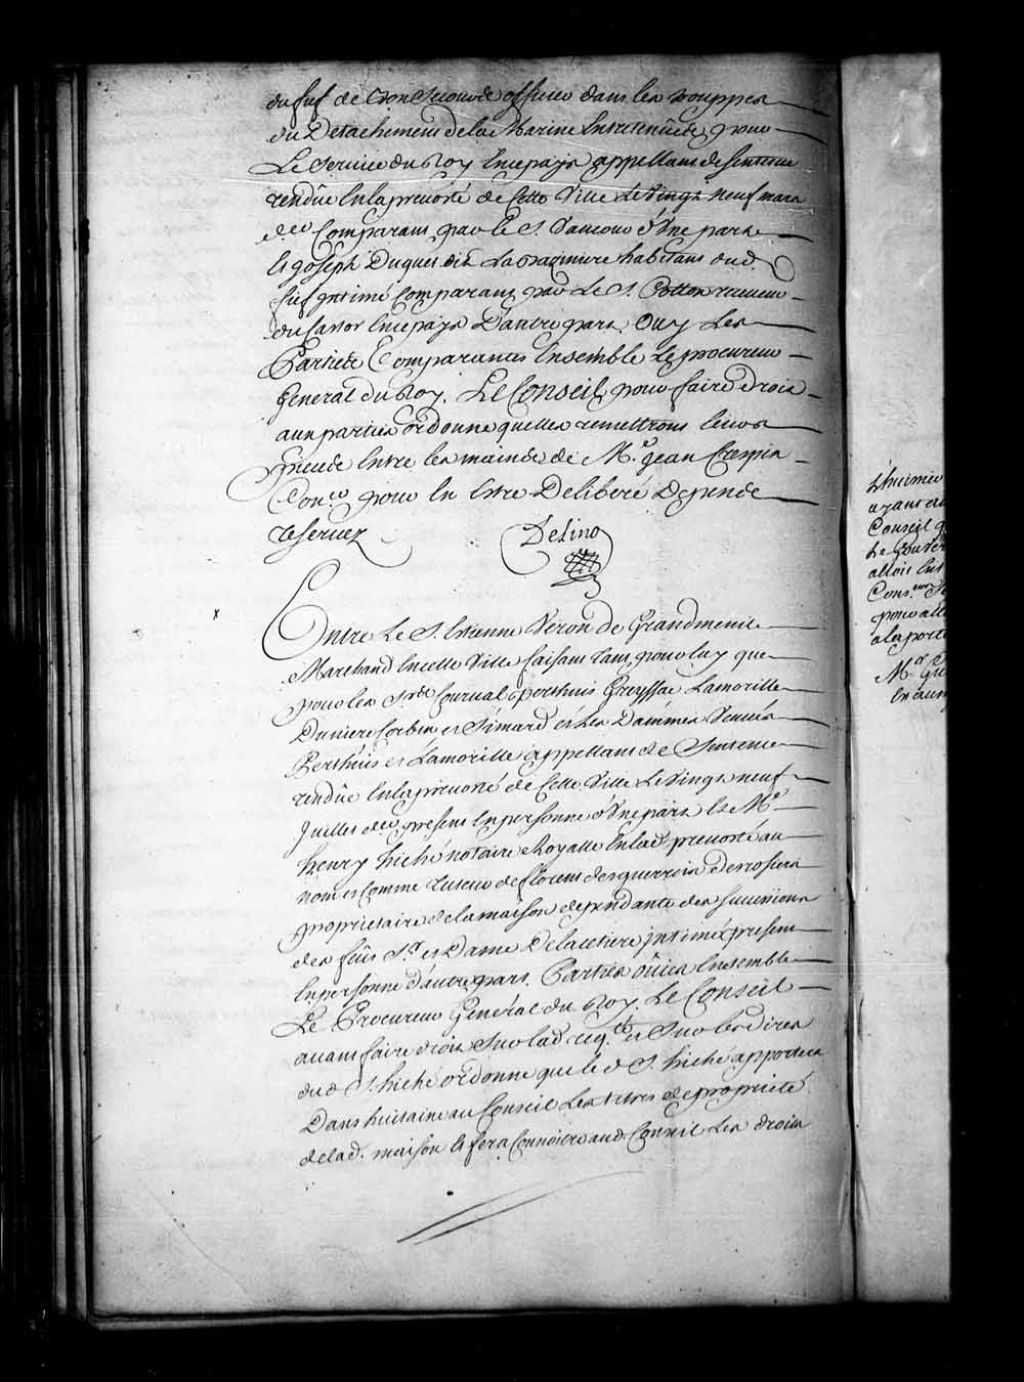 du fief de Cron Secoude officier dans les trouppes
du Detachement de la Marine Entretenües pour
Le Service du Roy Encepays appellant de Sentence
rendüe Enlaprevosté de Cette Ville Levingt neuf mars
der. Comparant par le S. Vaucour d'Une part
Et Joseph Duquet dit La Haziniere habitant dud.
fief Intimé Comparant par Le S. Cotton receveur
du Castor Encepays D'autre part. Ouy Les
Parties Comparantes Ensemble Le procureur
General du Roy. Le Conseil pour faire droit
aux parties ordonne quelles remettront leurs
pieces Entre les mains de Me. Jean Crespin
Conser. pour En Estre Deliberé Depends
reservez
Delino
x
Entre Le S. Estienne Veron de Grandmenil
Marchand Encette Ville faisant tant pour luy que
pour les Srs. Cournal perthuis Greyssac Lamorille
Duniere Corbin et Simard et Les Dammes Veuves
Berthuis et Lamorille appellant de Sentence
rendüe Enlaprevosté de Cette Ville Le Vingt neuf
Juillet der. present Enpersonne d'Une part Et Me.
henry hiché notaire Royalle Enlad. prevosté au
nom et Comme tuteur de Desrosiers
proprietaire de la maison dependante des Successions
des feus Sr. et Dame Delacetiere intimé present
Enpersonne d'autre part. Parties oüies Ensemble
Le Procureur General du Roy. Le Conseil
avant faire droit Sur lad. reqte. et Sur les dires
dud S. hiché ordonne que le d S. hiché apportera
Dans huitaine au Conseil Les titres de proprieté
delad. maison Et fera Connoitre aud. Conseil Les droits
ayant
Conseil
Le Gouver
alloit
Cons.er
pour all
a la porte